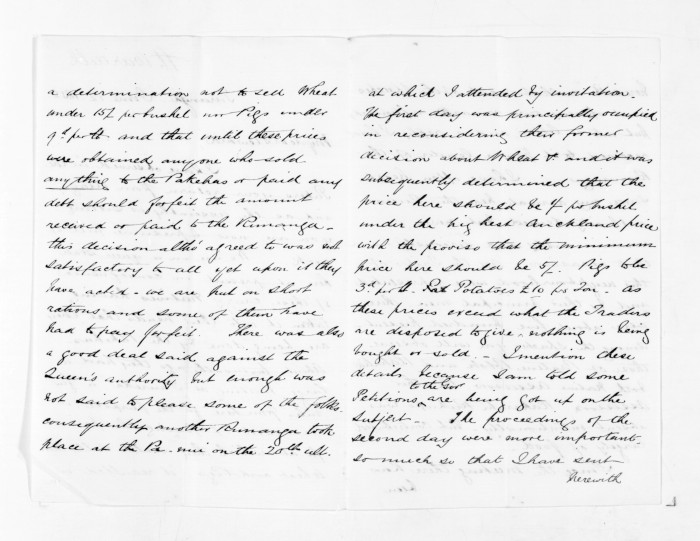 a determination not to sell Wheat
under 15/ per bushel nor Pigs under
9d per lb. and that until these prices
were obtained anyone who sold
anything to the Pakehas or paid any
debt should forfeit the amount
received or paid to the Runanga -
this decision altho' agreed to was not
satisfactory to all yet upon it they
have acted - we are put on short
rations and some of them have
had to pay forfeit. There was also
a good deal said against the
Queen's authority but enough was
not said to please some of the folks
consequently another Runanga took
place at the Pa on the 20th ult.
at which I attended by invitation.
The first day was principally occupied
in reconsidering their former
decision about Wheat & and it was
subsequently determined that the
price here should be per bushel
under the highest Auckland price
with the proviso that the minimum
price here should be 5/. Pigs to be
3d per lb. Potatoes £10 per Ton. As
these prices exceed what the Traders
are disposed to give, nothing is being
bought or sold. - I mention these
details because I am told some
Petitions to the Gov are being got up on the
subject - The proceedings of the
second day were more important -
so much so that I have sent
herewith